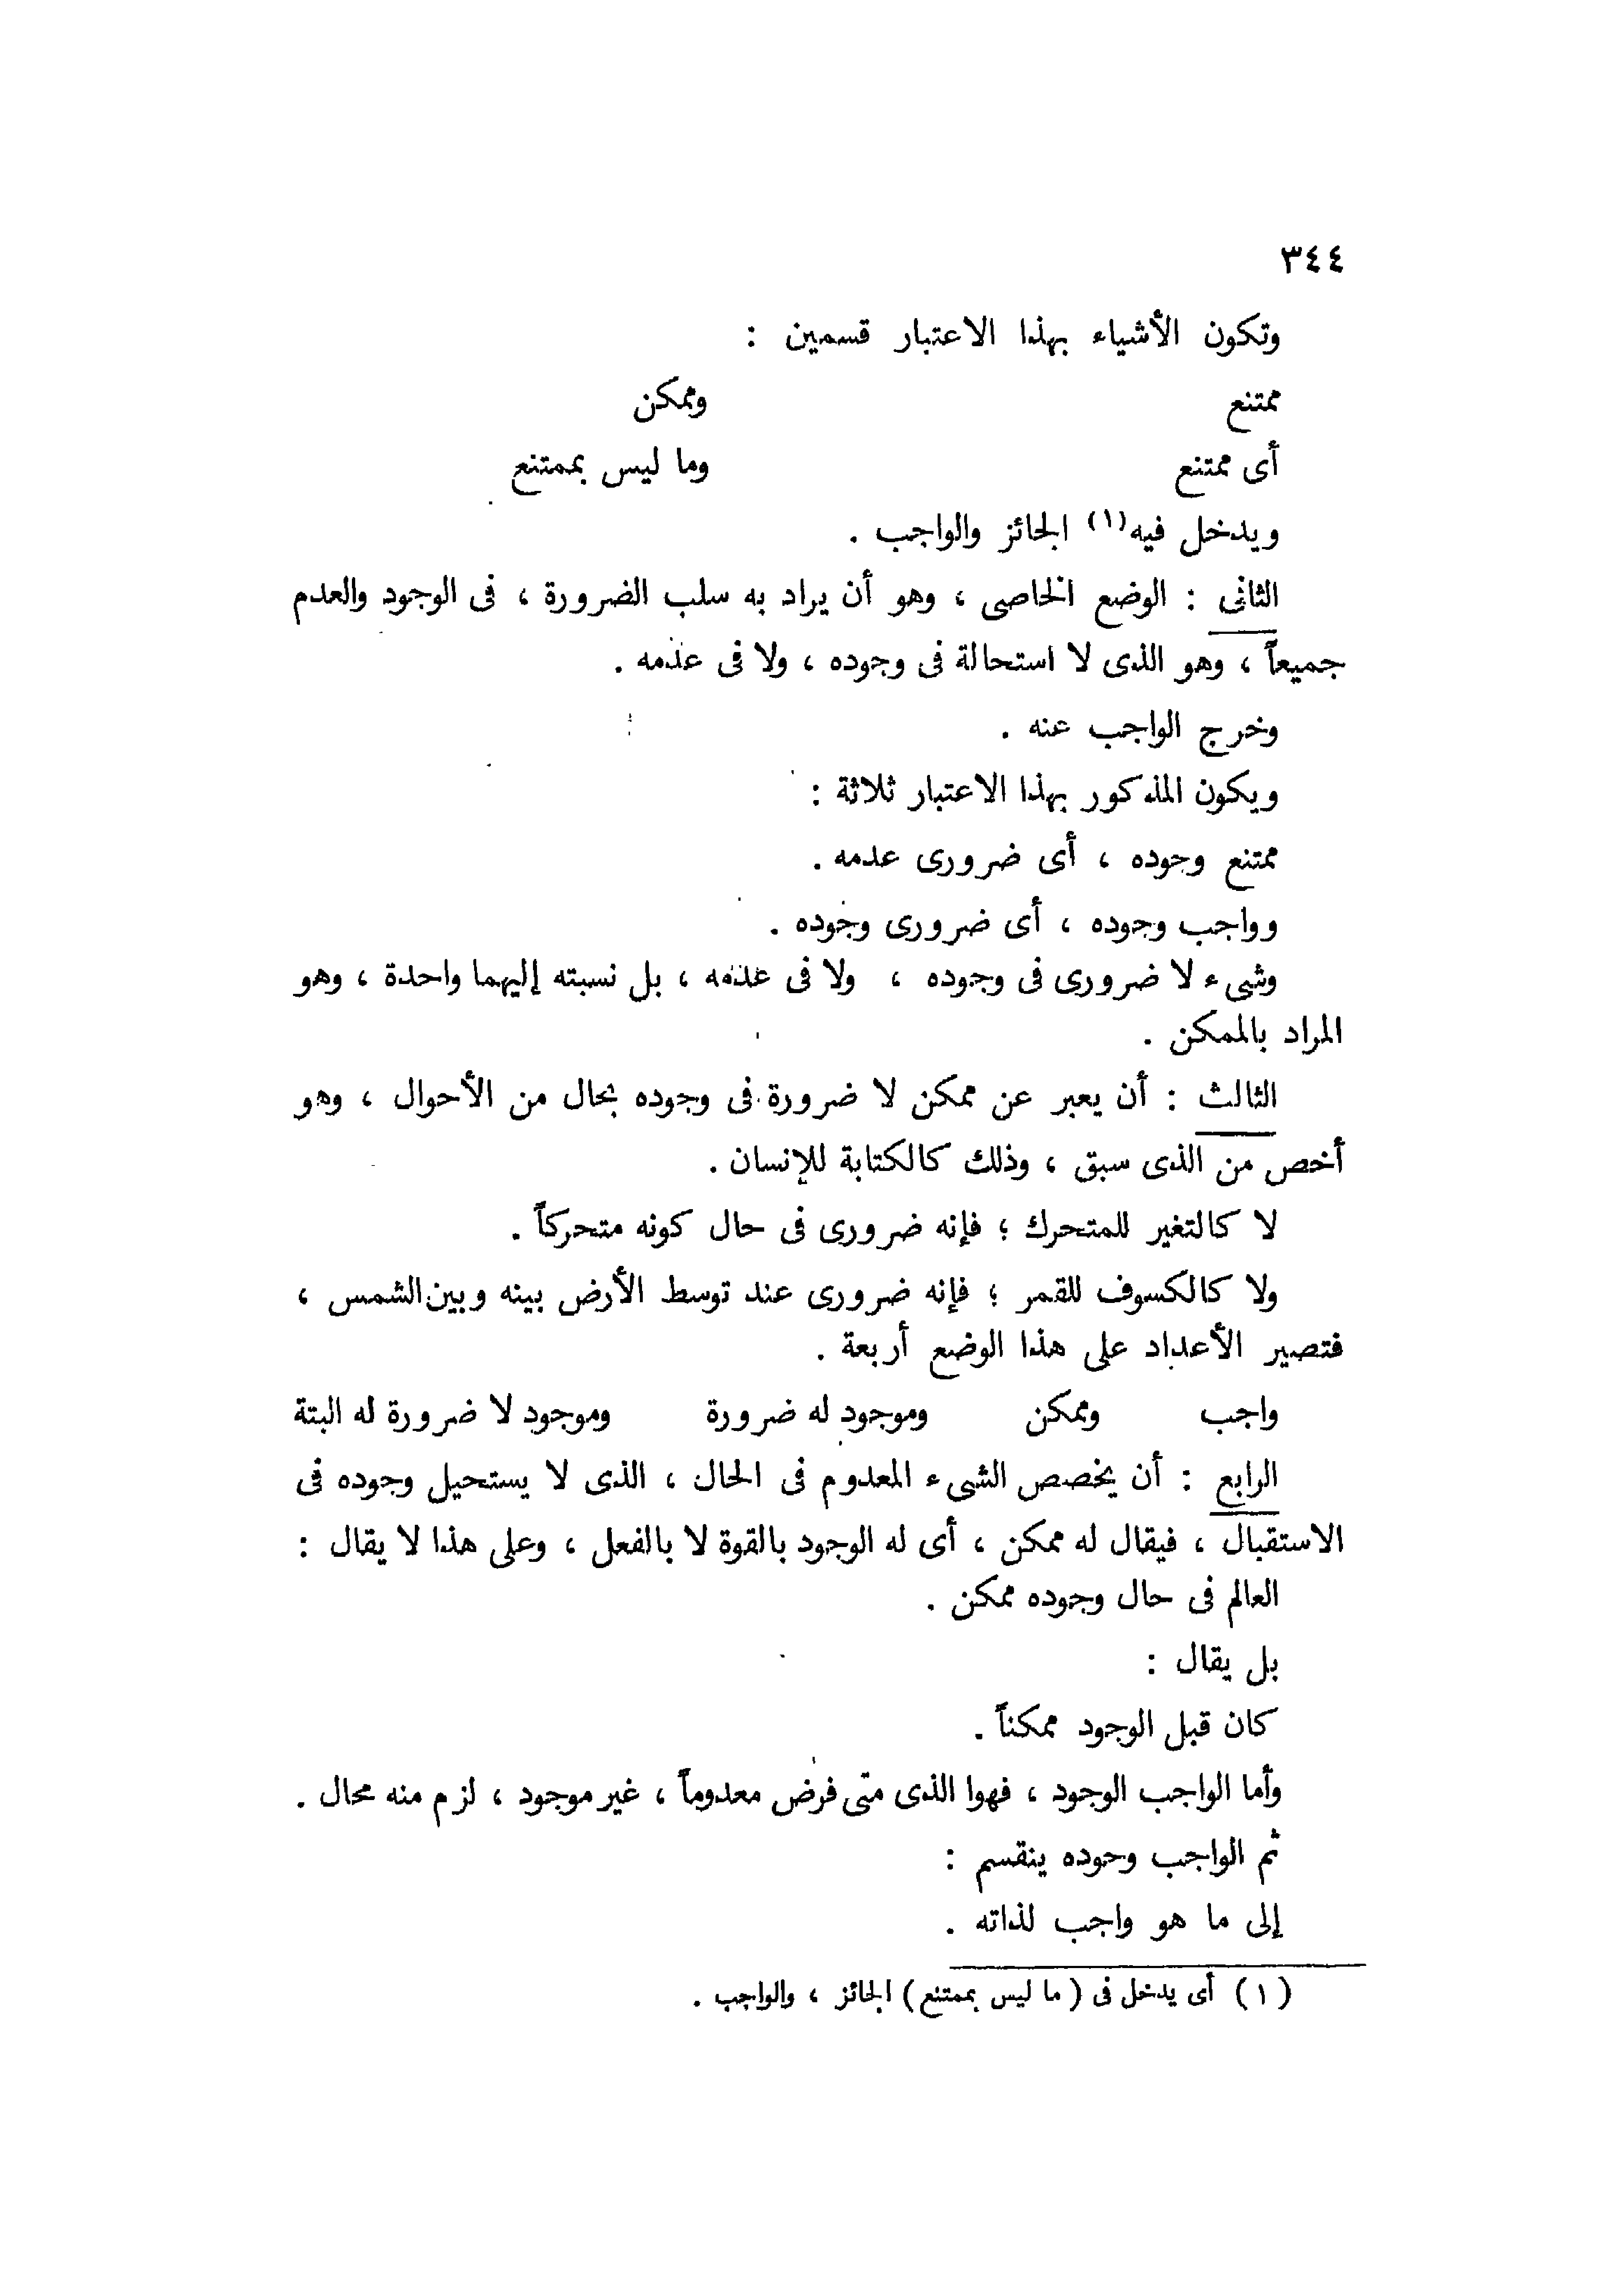 ٣٤٤
وتكون الأشياء بهذا الاعتبار قسمين :
ممتنع وممكن
أى ممتنع وما ليس بممتنع
ويدخل فيه(١) الجائز والواجب .
الثانى : الوضع الخاصى ، وهو أن يراد به سلب الضرورة ، فى الوجود والعدم
جميعاً ، وهو الذى لا استحالة فى وجوده ، ولا فى عدمه .
وخرج الواجب عنه .
ويكون المذكور بهذا الاعتبار ثلاثة :
ممتنع وجوده ، أى ضرورى عدمه .
وواجب وجوده ، أى ضرورى وجوده .
وشىء لا ضرورى فى وجوده ، ولا فى عدمه ، بل نسبته إليهما واحدة ، وهو
المراد بالممكن .
الثالث : أن يعبر عن ممكن لا ضرورة فى وجوده بحال من الأحوال ، وهو
أخص من الذى سبق ، وذلك كالكتابة للإنسان .
لا كالتغير للمتحرك ؛ فإنه ضرورى فى حال كونه متحركاً .
ولا كالكسوف للقمر ؛ فإنه ضرورى عند توسط الأرض بينه وبين الشمس ،
فتصير الأعداد على هذا الوضع أربعة .
واجب وممكن وموجود له ضرورة وموجود لا ضرورة له البتة
الرابع : أن يخصص الشىء المعدوم فى الحال ، الذى لا يستحيل وجوده فى
الاستقبال ، فيقال له ممكن ، أى له الوجود بالقوة لا بالفعل ، وعلى هذا لا يقال :
العالم فى حال وجوده ممكن .
بل يقال :
كان قبل الوجود ممكناً .
وأما الواجب الوجود ، فهوا الذى متى فرض معدوماً ، غير موجود ، لزم منه محال .
ثم الواجب وحوده ينقسم :
إلى ما هو واجب لذاته .
(١) أى يدخل فى (ما ليس بممتنع) الجائز ، والواجب .